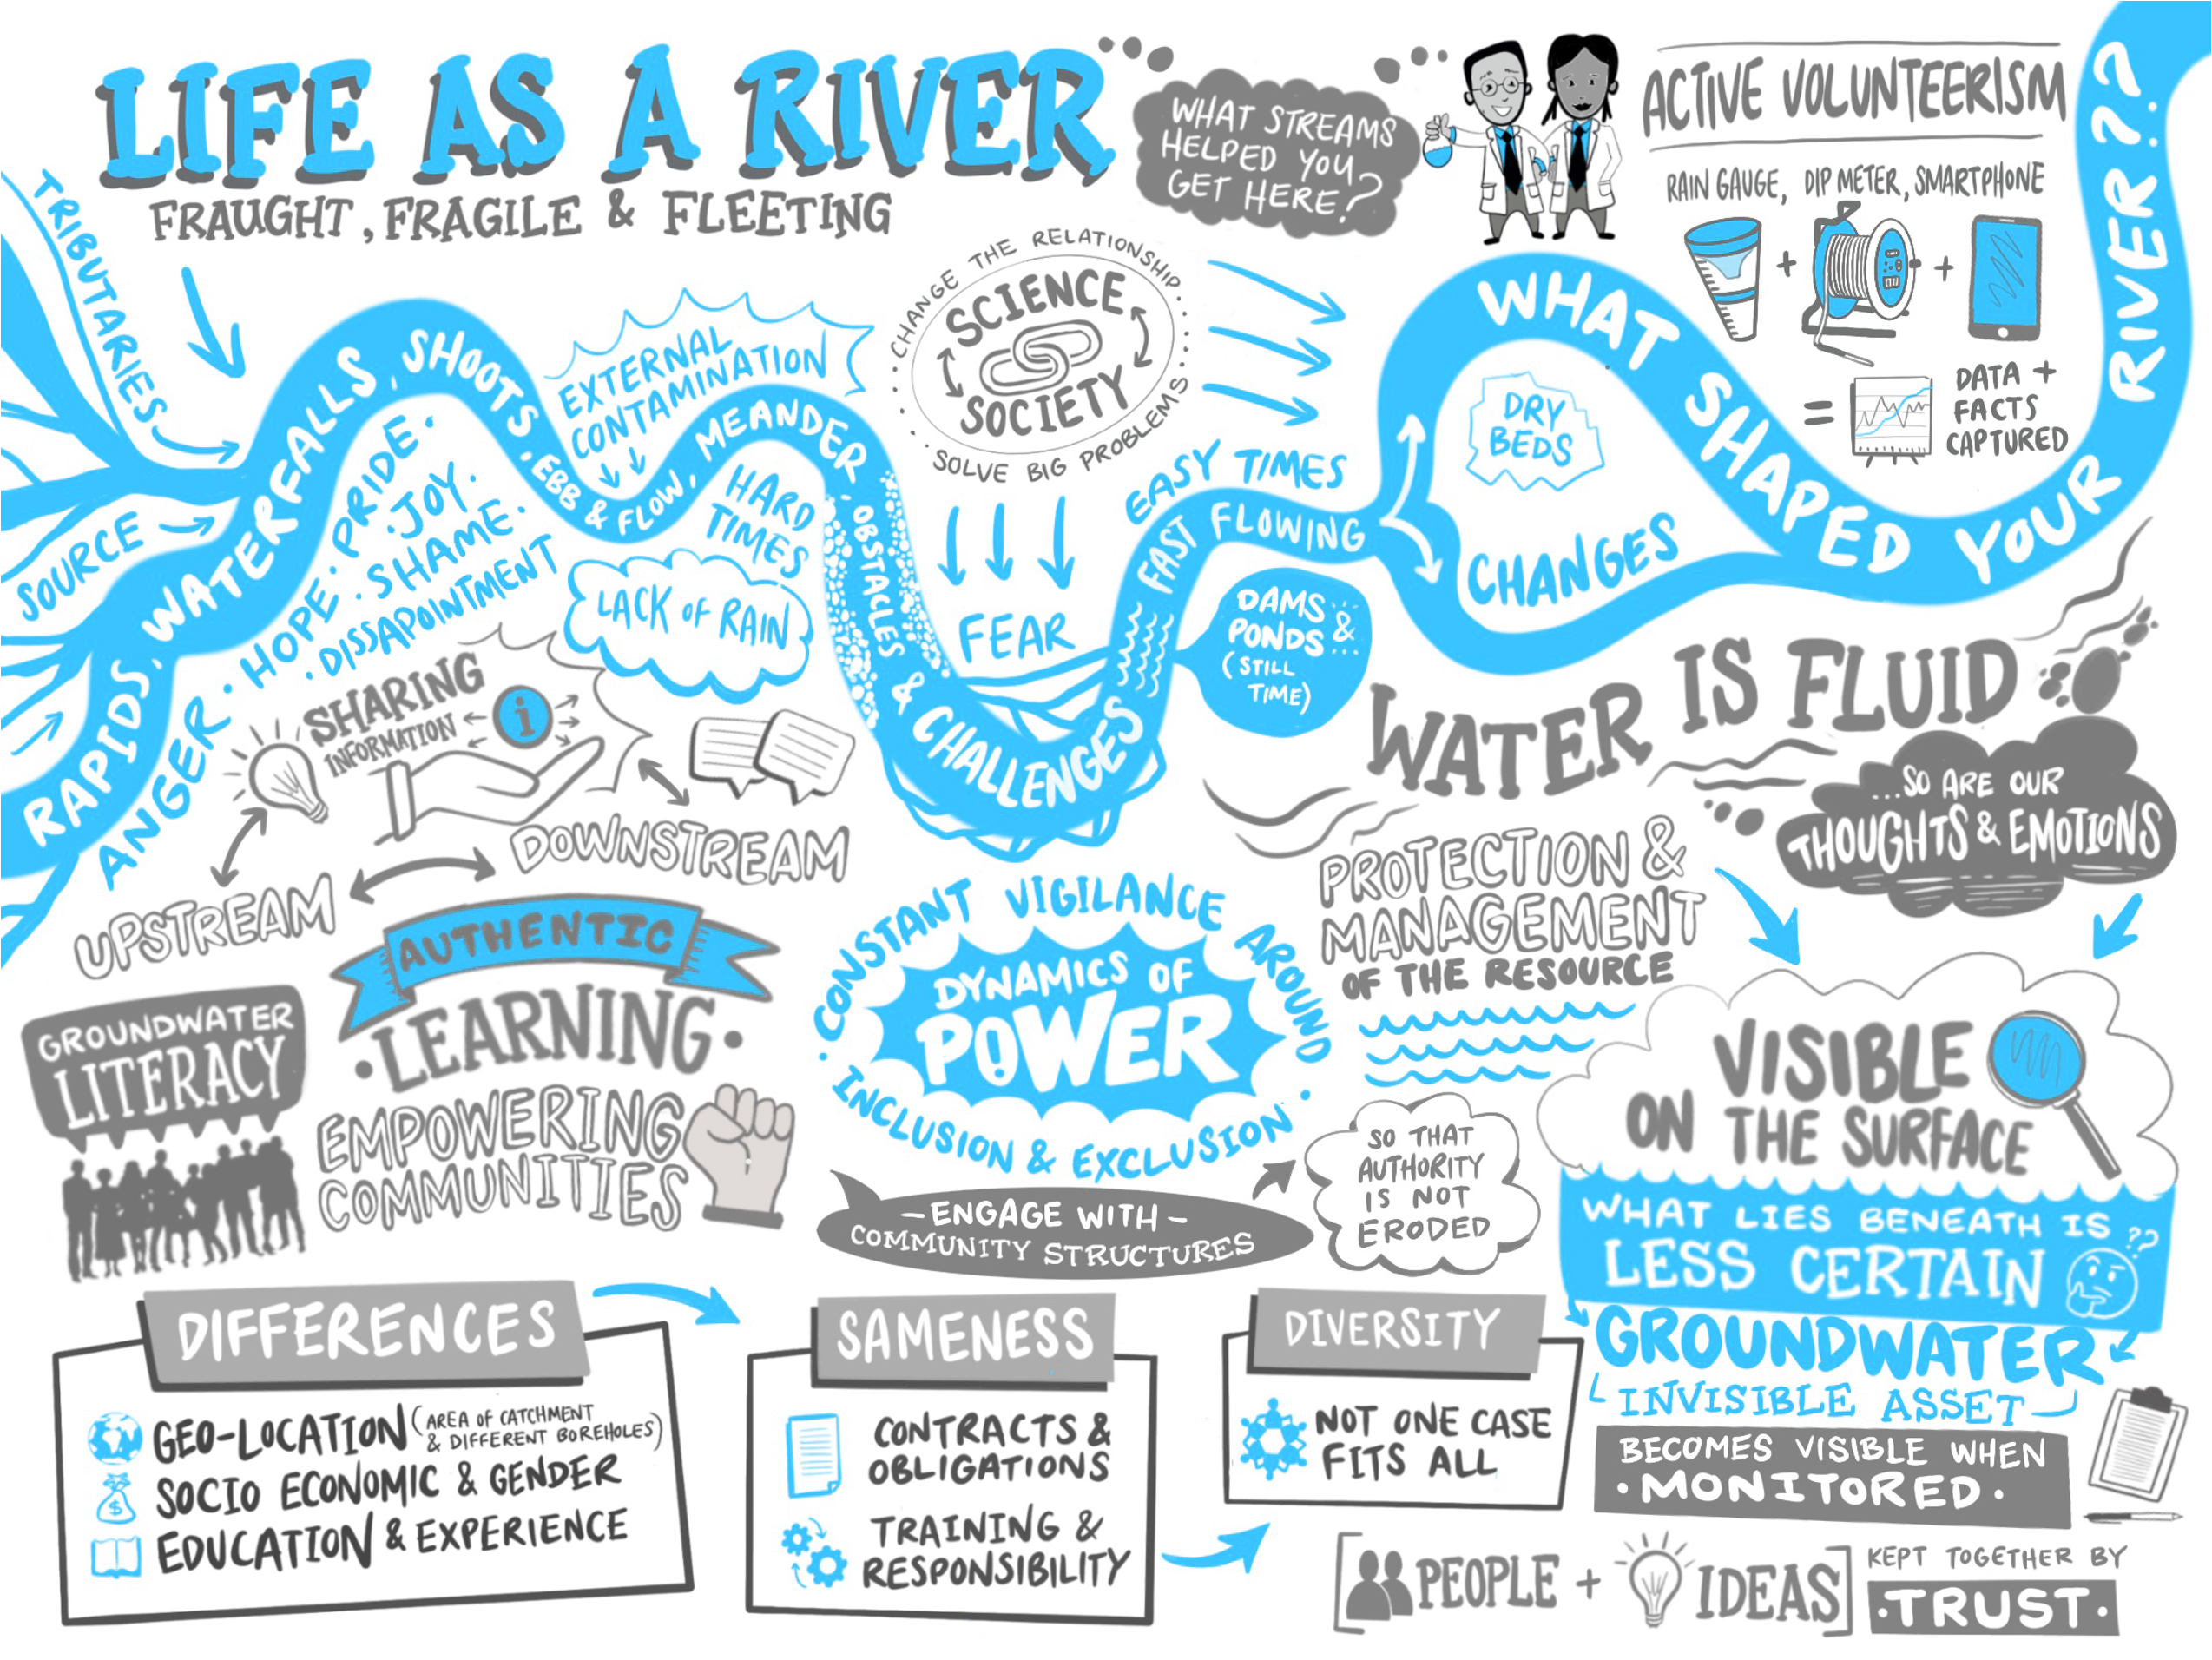 LIFE AS A RIVER
FRAUGHT, FRAGILE & FLEETING
WHAT STREAMS
HELPED YOU
GET HERE?
ACTIVE VOLUNTEERISM
RAIN GAUGE, DIP METER, SMARTPHONE
+
+
=
DATA +
FACTS
CAPTURED
TRIBUTARIES
SOURCE
RAPIDS, WATERFALLS, SHOOTS, EBB & FLOW, MEANDER, OBSTACLES & CHALLENGES
FAST FLOWING
WHAT SHAPED YOUR RIVER??
ANGER · HOPE · PRIDE ·
· JOY.
· SHAME.
· DISSAPOINTMENT
EXTERNAL
CONTAMINATION
HARD
TIMES
LACK OF RAIN
CHANGE THE RELATIONSHIP
SCIENCE
SOCIETY
SOLVE BIG PROBLEMS
FEAR
EASY TIMES
DAMS &
PONDS
(STILL
TIME)
DRY
BEDS
CHANGES
SHARING
INFORMATION
i
UPSTREAM
DOWNSTREAM
WATER IS FLUID
...SO ARE OUR
THOUGHTS & EMOTIONS
GROUNDWATER
LITERACY
AUTHENTIC
· LEARNING ·
EMPOWERING
COMMUNITIES
· CONSTANT VIGILANCE AROUND
DYNAMICS OF
POWER
· INCLUSION & EXCLUSION ·
– ENGAGE WITH –
COMMUNITY STRUCTURES
SO THAT
AUTHORITY
IS NOT
ERODED
PROTECTION &
MANAGEMENT
OF THE RESOURCE
VISIBLE
ON THE SURFACE
WHAT LIES BENEATH IS
LESS CERTAIN ??
GROUNDWATER
INVISIBLE ASSET
BECOMES VISIBLE WHEN
· MONITORED ·
DIFFERENCES
GEO-LOCATION (AREA OF CATCHMENT
& DIFFERENT BOREHOLES)
$
SOCIO ECONOMIC & GENDER
EDUCATION & EXPERIENCE
SAMENESS
CONTRACTS &
OBLIGATIONS
TRAINING &
RESPONSIBILITY
DIVERSITY
NOT ONE CASE
FITS ALL
[PEOPLE + IDEAS] KEPT TOGETHER BY
· TRUST ·